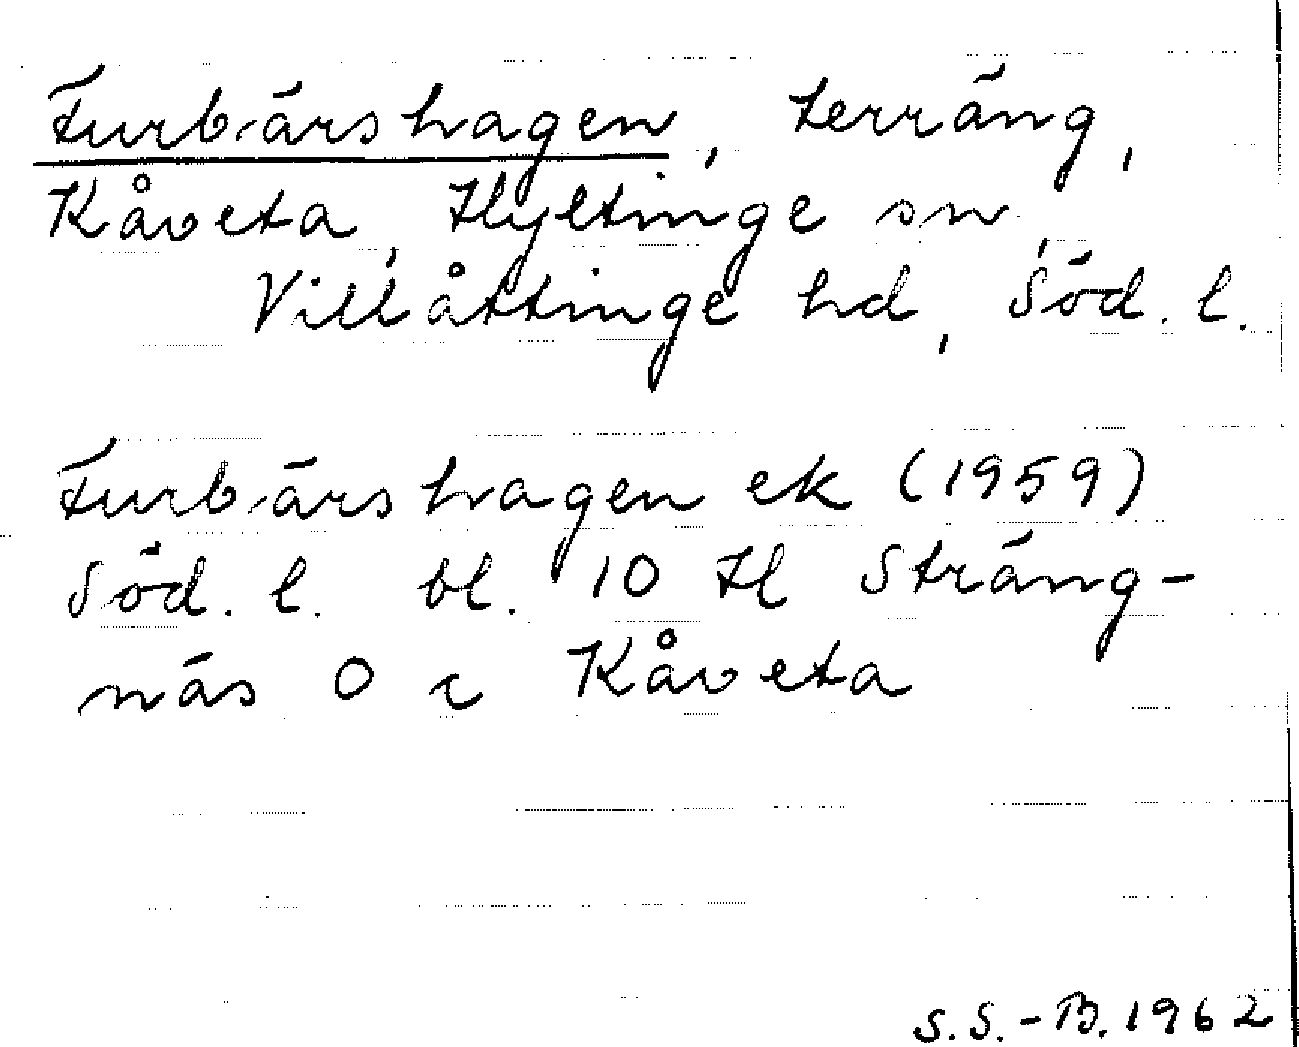 Furbärshagen, terräng,
Kåveta, Hyltinge sn,
Villåttinge hd, Söd. l.
Furbärshagen ek (1959)
Söd. l. bl. 10 H Sträng-
näs O i Kåveta
S.S.-B. 1962